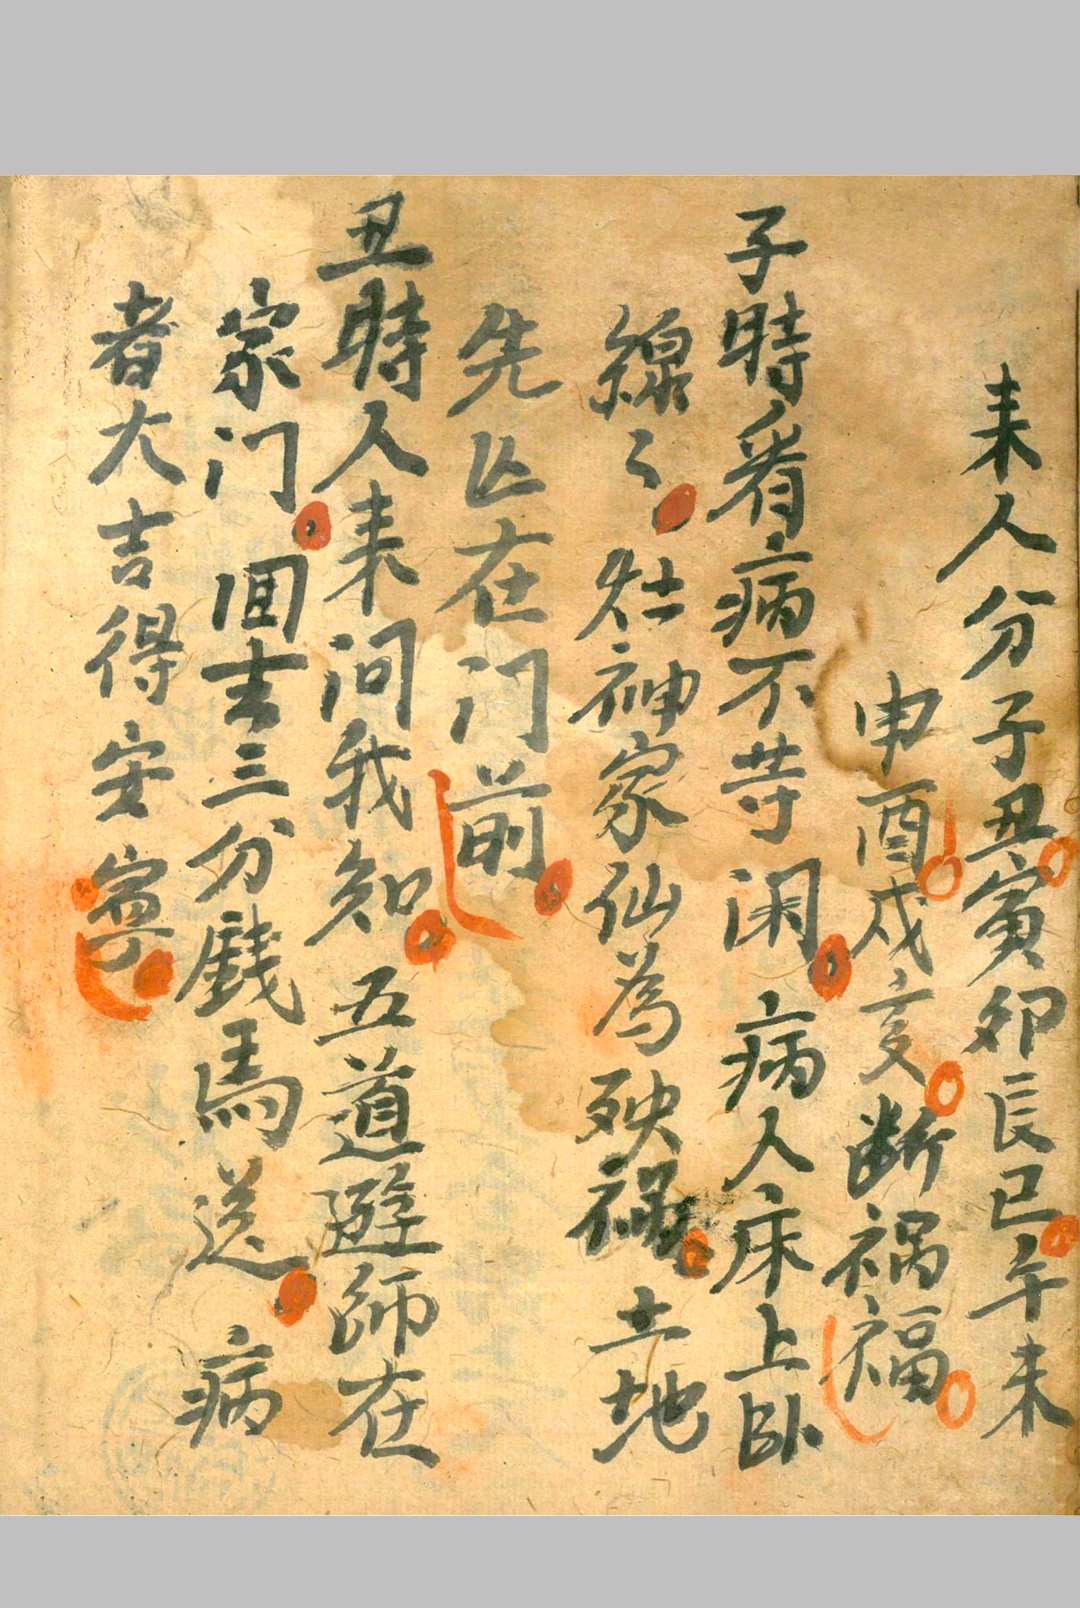 来人分子丑寅卯辰巳午未
申酉戌亥断祸福
子時看病不䓁闲病人床上卧
綿々灶神家仙為殃祸土地
先亾在门前
丑時人来问我知五道遊師在
家门回去三分錢馬送病
者大吉得安寧